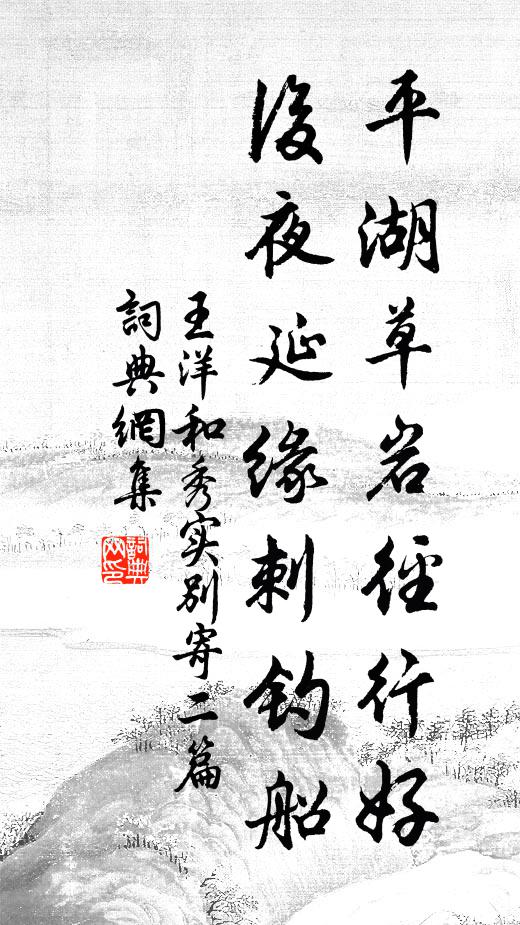 平湖草岩徑行好
後夜延緣刺釣船
王洋和秀实别寄二篇
詞典網集
詞典網印